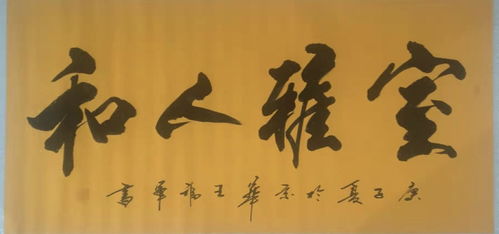 室雅人和
庚子夏於京華王書